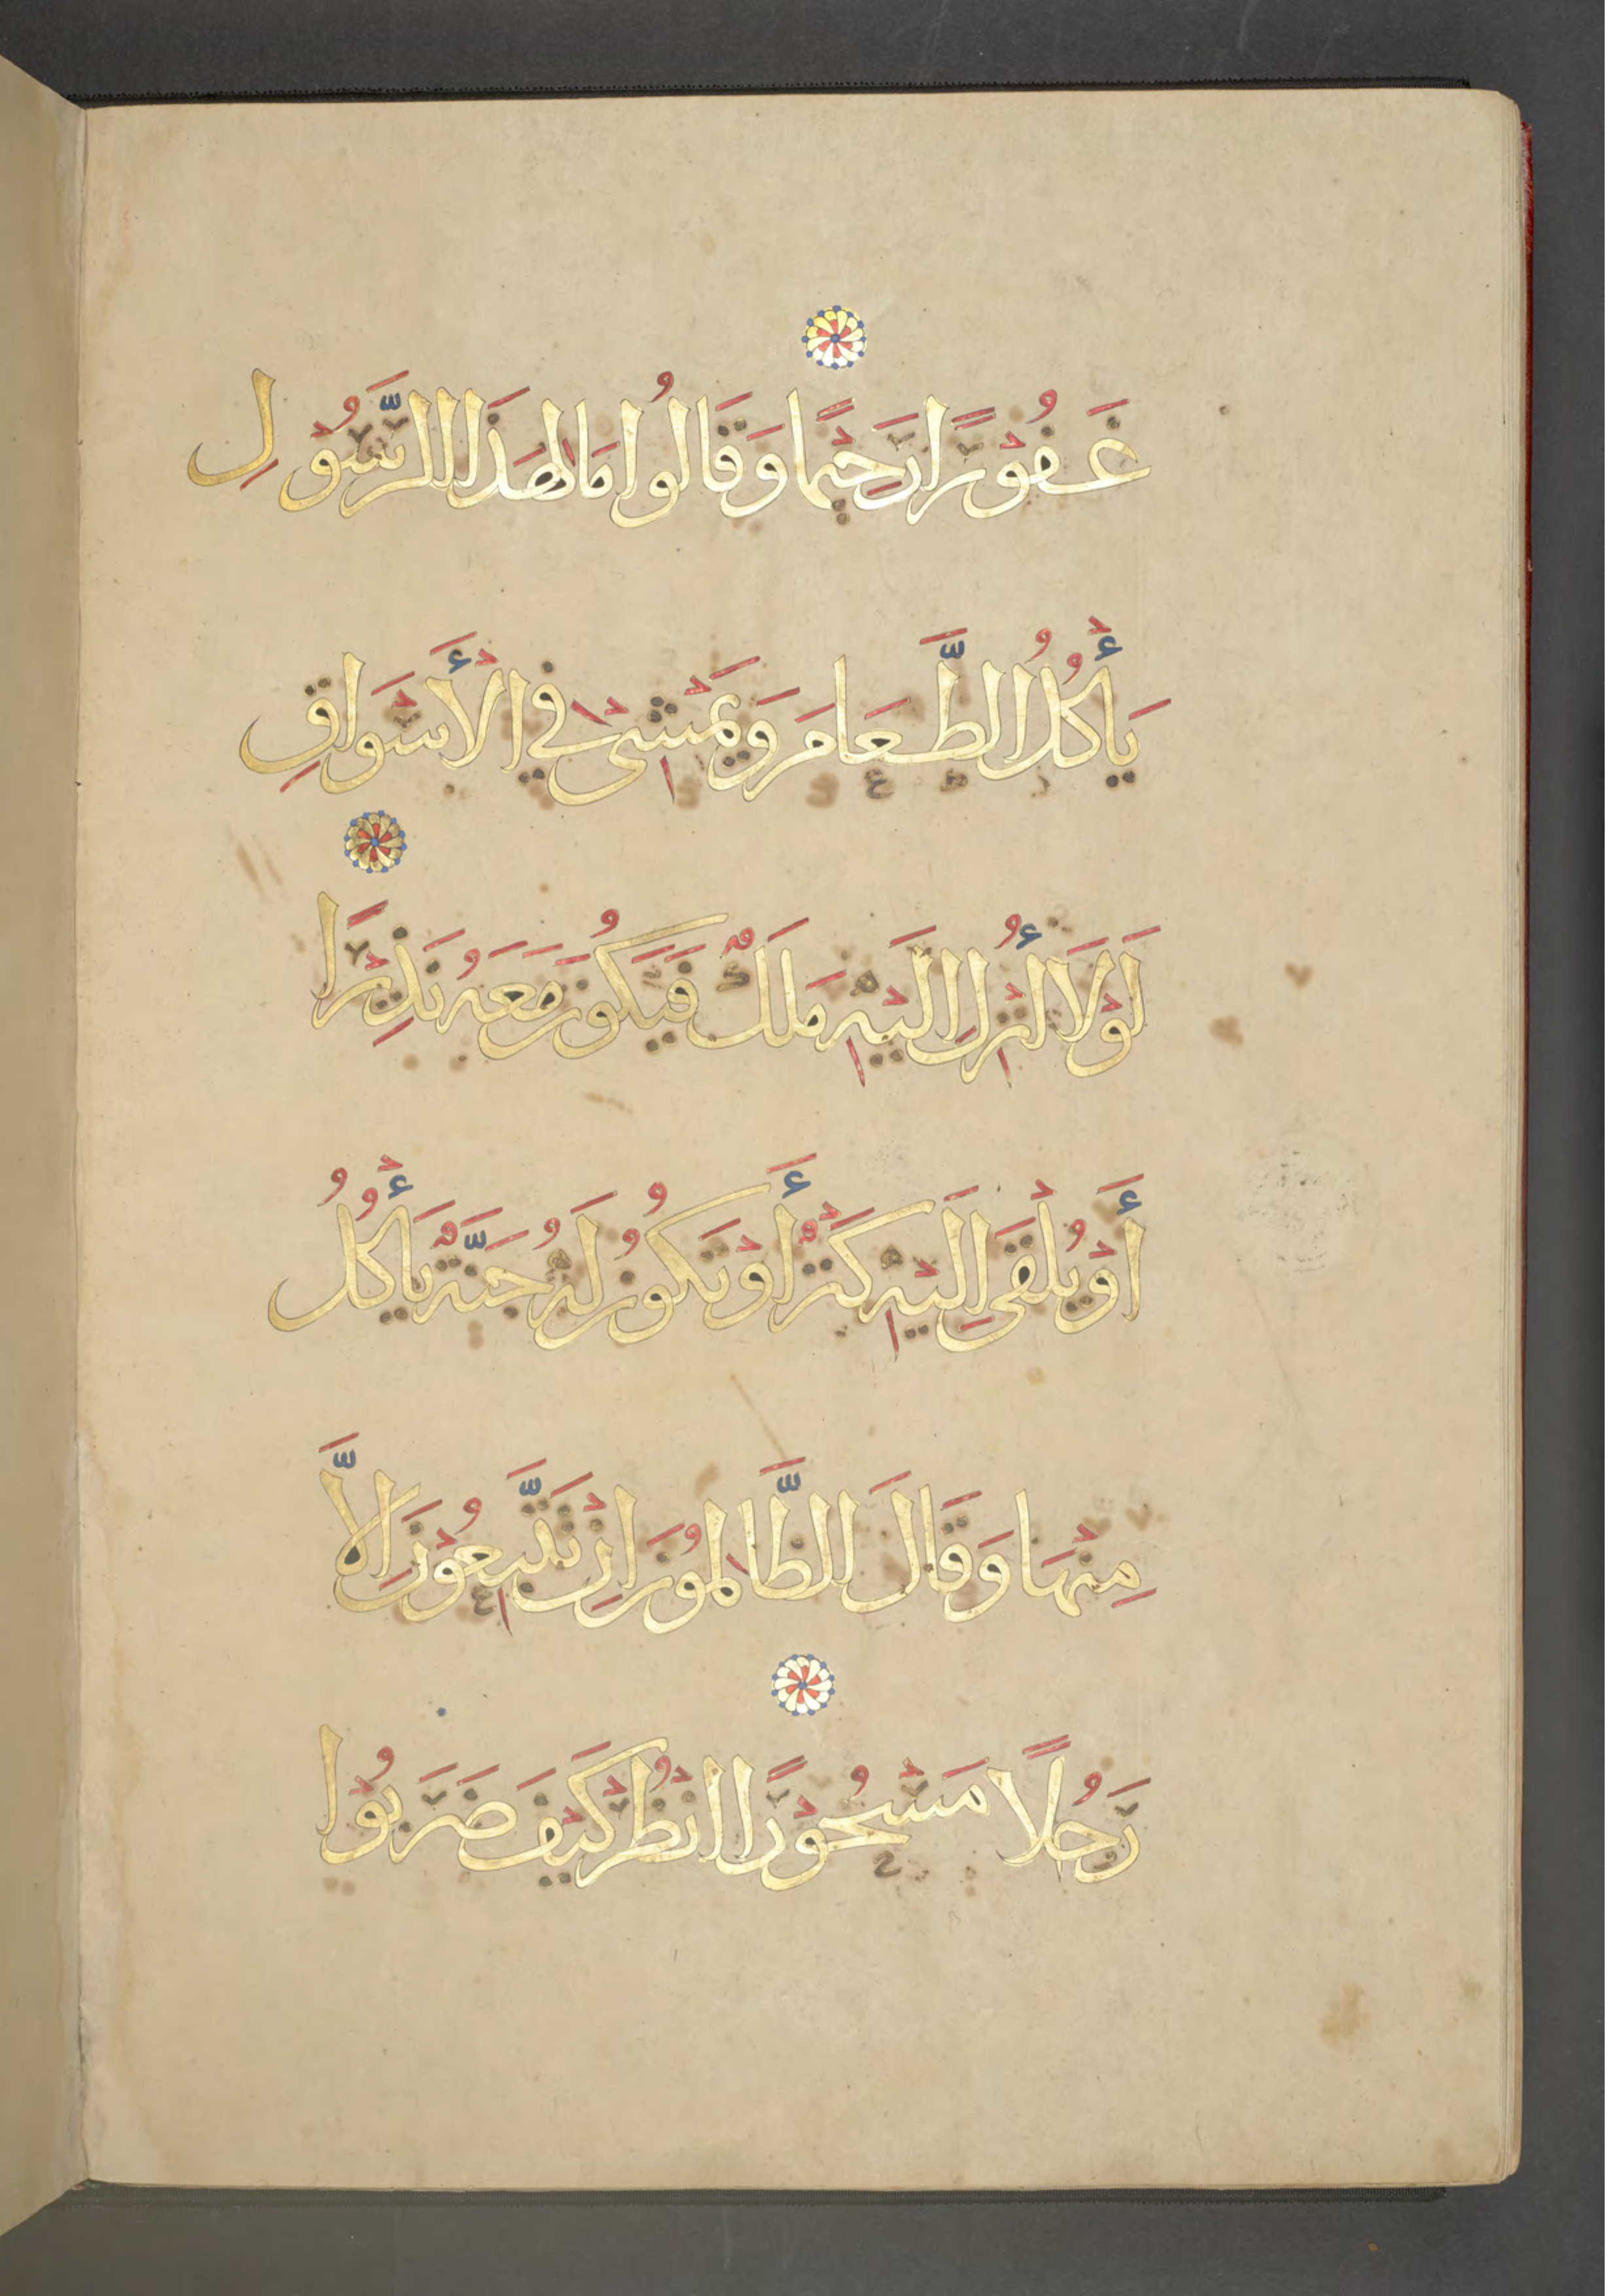 غَفُوْرًا رَحِيْمًا وَقَالُوا مَالِ هَذَا الرَّسُوْلِ
يَأْكُلُ الطَّعَامَ وَيَمْشِى فِي الْأَسْوَاقِ
لَوْلَا أُنْزِلَ اِلَيْهِ مَلَكٌ فَيَكُوْنَ مَعَهُ نَذِيْرًا
أَوْ يُلْقَى اِلَيْهِ كَنْزٌ أَوْ تَكُوْنُ لَهُ جَنَّةٌ يَأْكُلُ
مِنْهَا وَقَالَ الظَّالِمُوْنَ اِنْ تَتَّبِعُوْنَ اِلَّا
رَجُلًا مَسْحُوْرًا انْظُرْ كَيْفَ ضَرَبُوْا